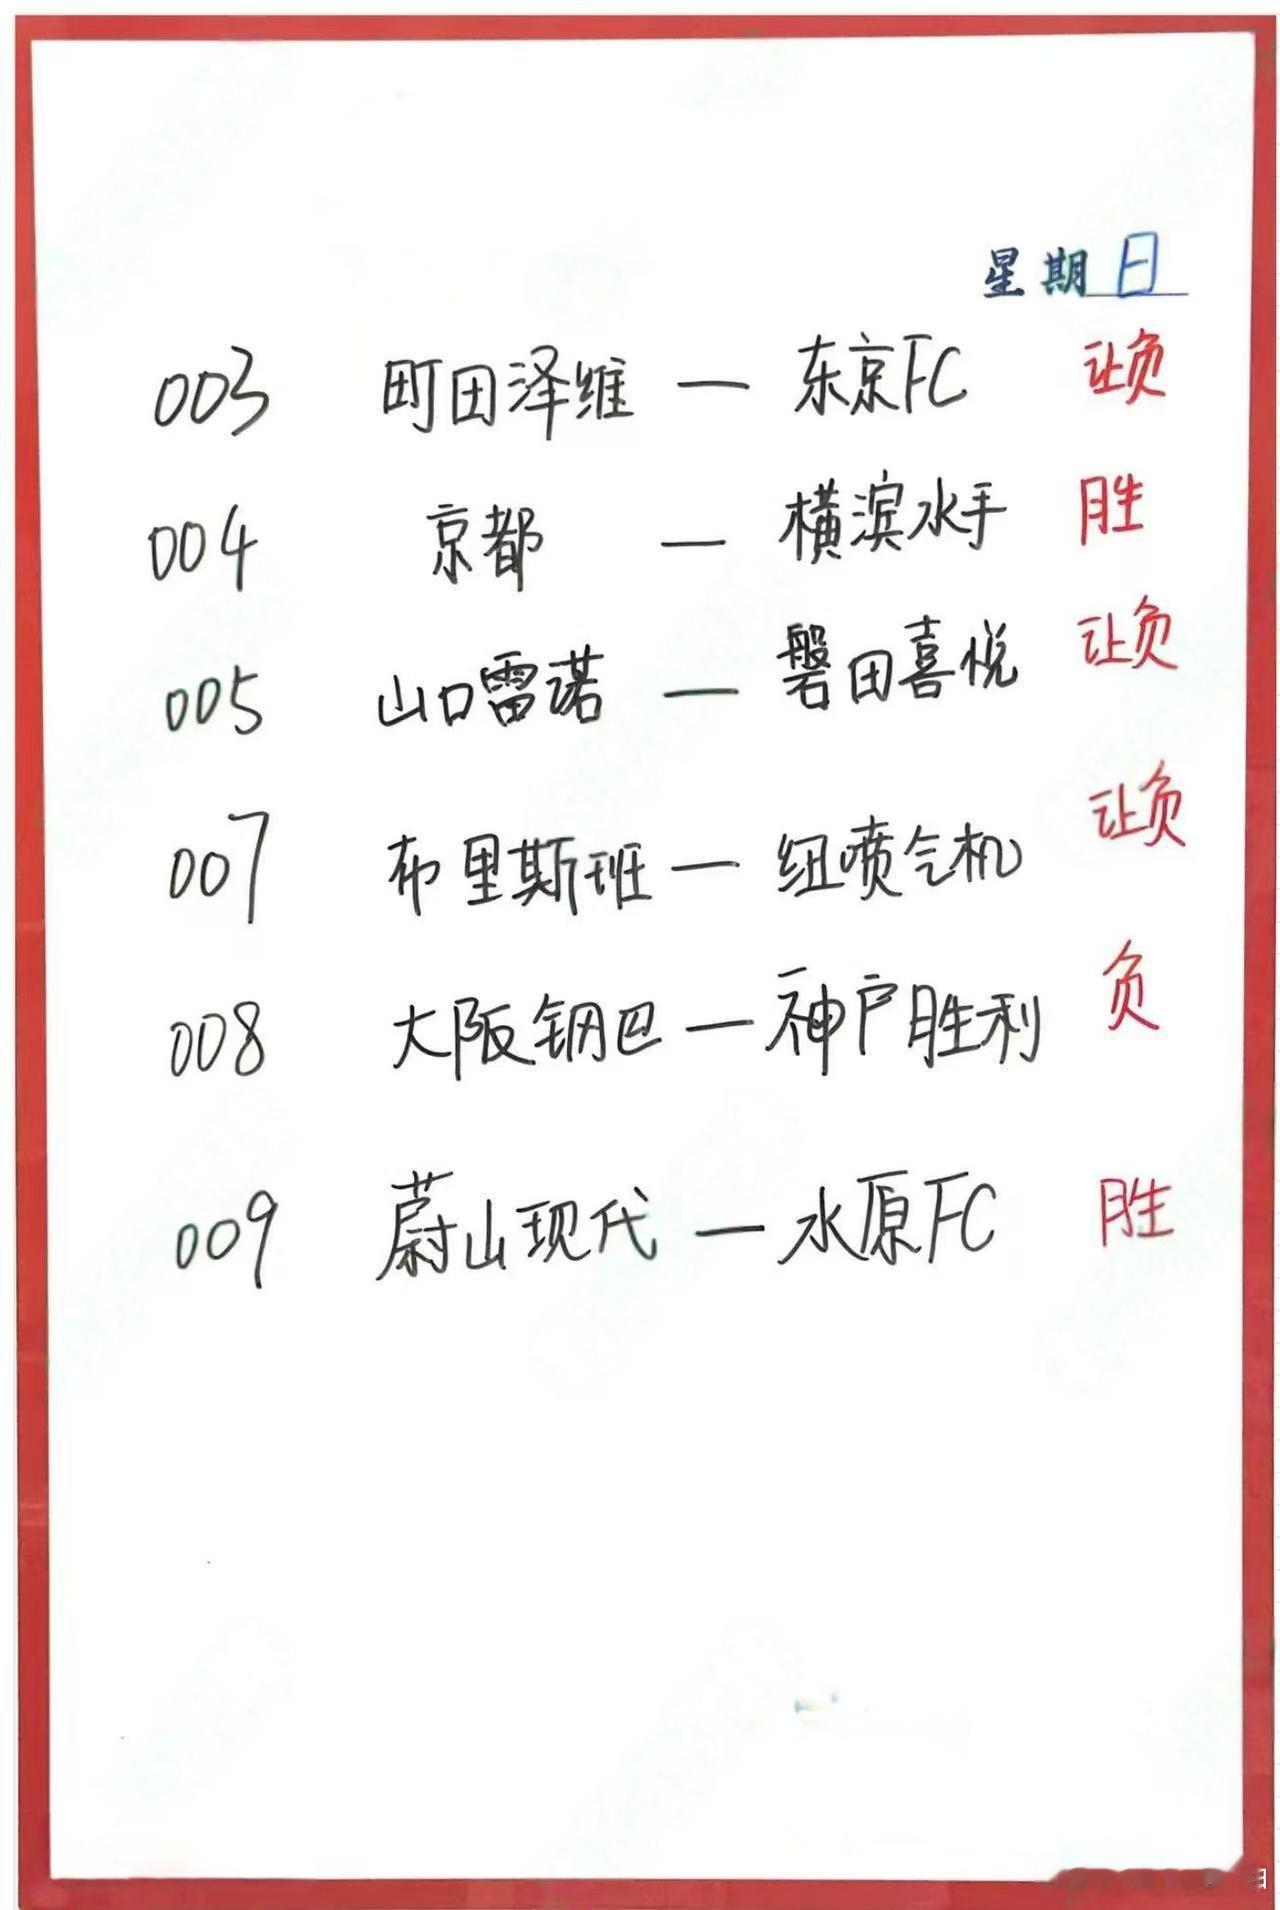 星期日
003 町田泽维 — 东京FC 让负
004 京都 — 横滨水手 胜
005 山口雷诺 — 磐田喜悦 让负
007 布里斯班 — 纽喷气机 让负
008 大阪钢巴 — 神户胜利 负
009 蔚山现代 — 水原FC 胜